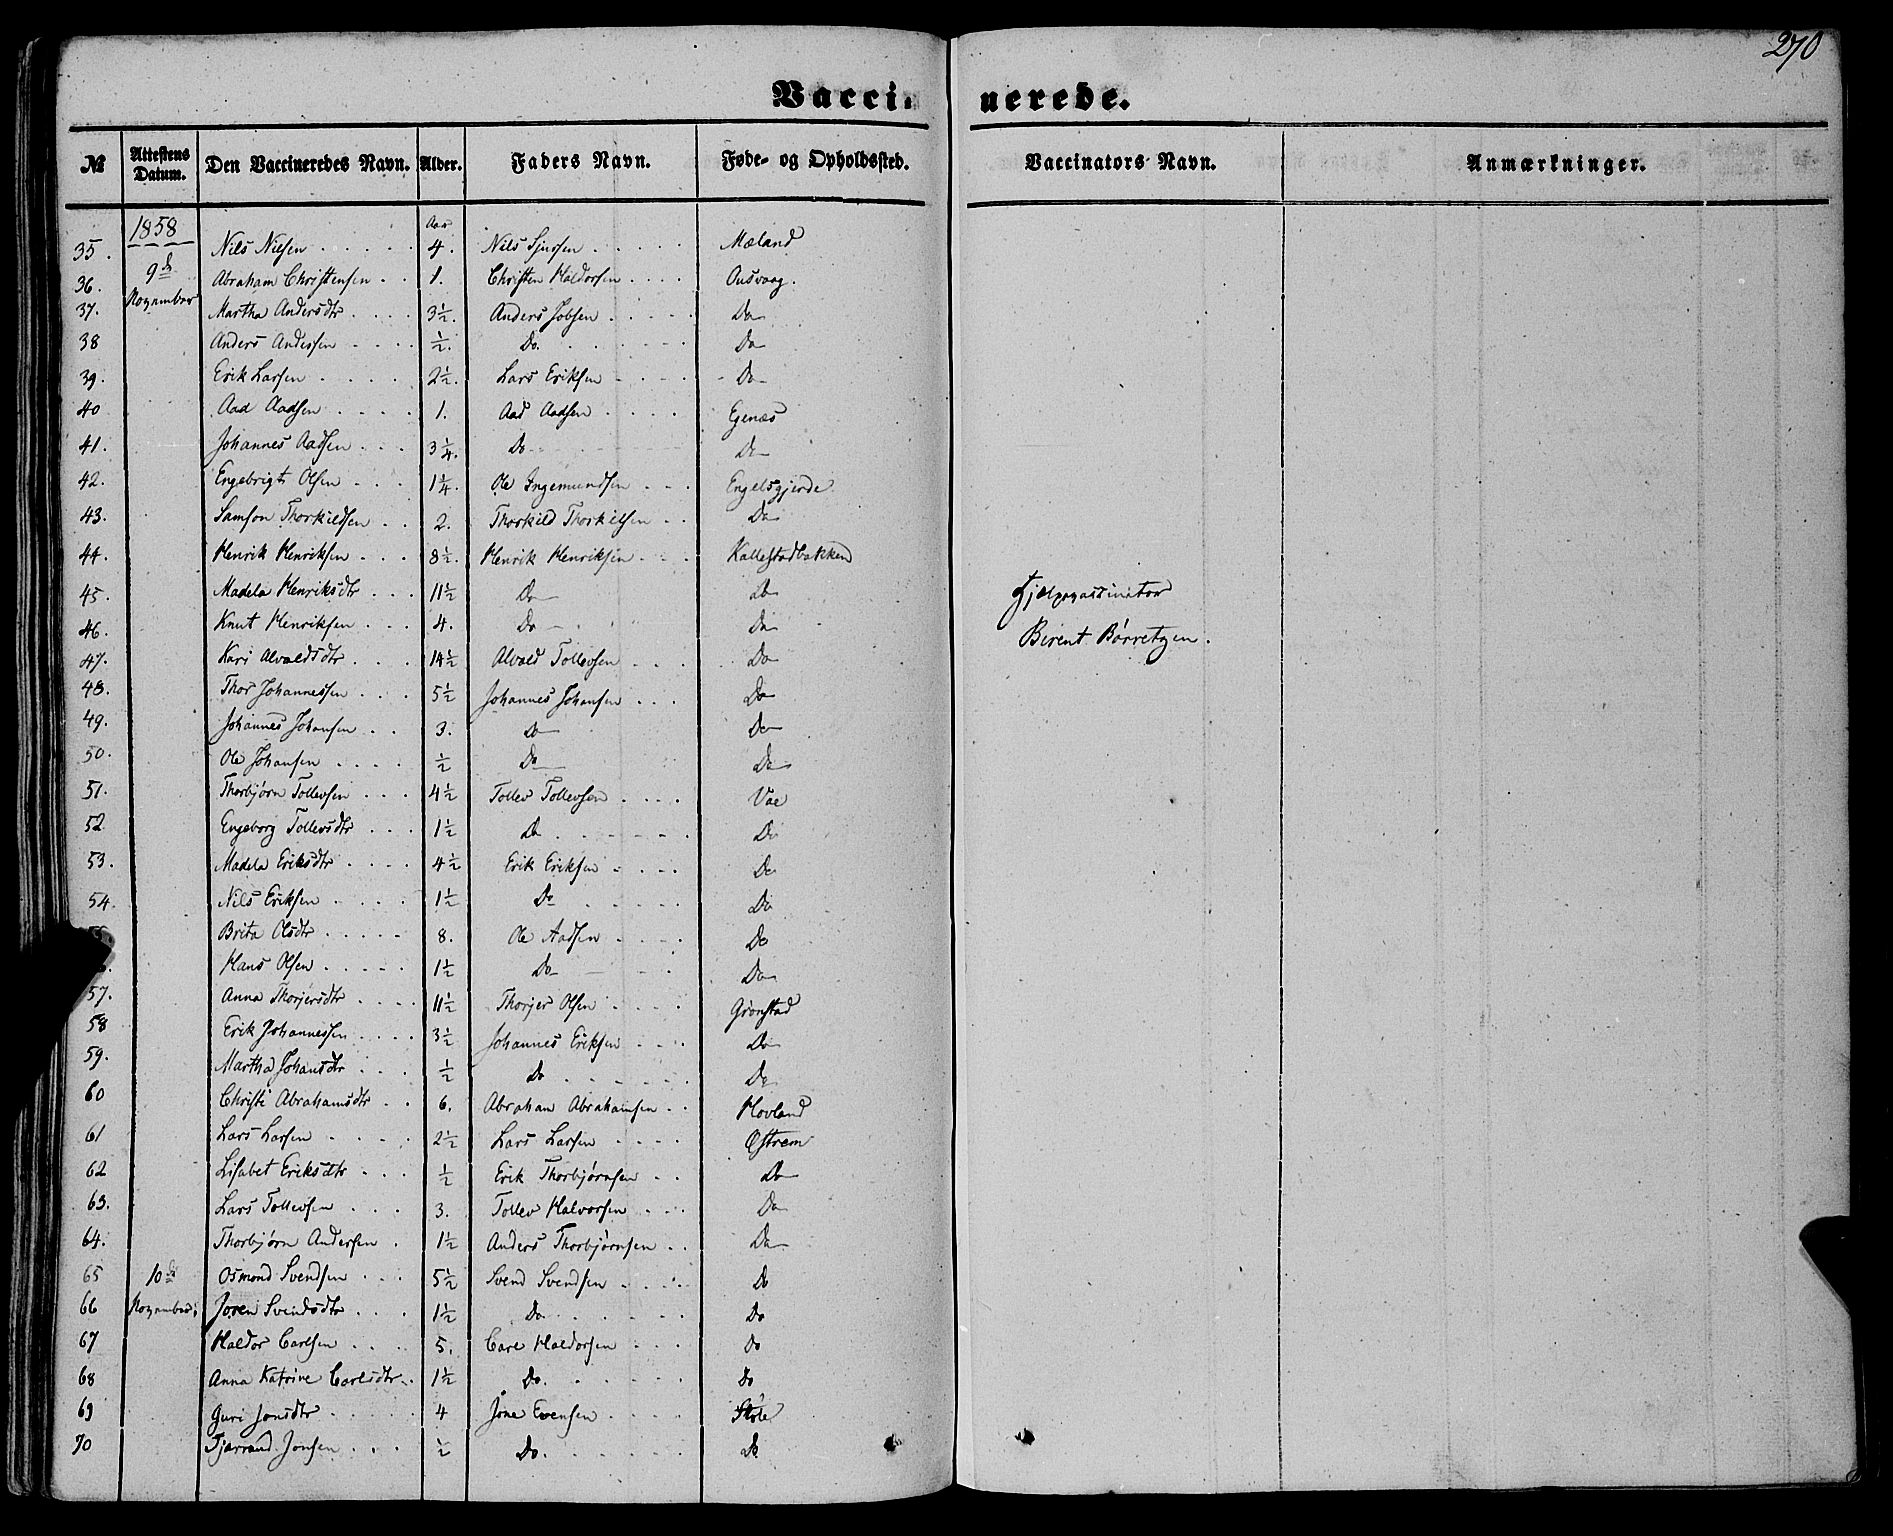 270
Vaccinerede.
№ Attestens Datum. Den Vaccineredes Navn. Alder. Faders Navn. Føde- og Opholdssted. Vaccinators Navn. Anmærkninger.
1858 Aar
35. Nils Nielsen 4. Nils Sjursen Mæland
36. 9de November Abraham Christensen 1. Christen Haldorsen
37. Martha Andersdtr 3½. Anders Jobsen Do
38 Anders Andersen ½. Do. Do
39. Erik Larsen 2½. Lars Eriksen Do
40 Aad Aadsen 1. Aad Aadsen Egenæs
41. Johannes Aadsen 3¼. Do Do
42. Engebrigt Olsen 1¼. Ole Ingemundsen Engelsgjerde
43. Samson Thorkildsen 2. Thorkild Thorkilsen Do
44. Henrik Henriksen 8½. Henrik Henriksen Kallestadbakken
45. Madela Henriksdtr 11½ Do Do
46. Knut Henriksen 4. Do Do
47. Kari Alvaldsdtr 14½ Alvald Tollevsen Do
48. Thor Johannessen 5½ Johannes Johansen Do
49. Johannes Johansen 3. Do Do
50. Ole Johansen ½ Do Do
51. Thorbjørn Tollevsen 4½ Tollev Tollevsen Vae
52 Engeborg Tollevsdtr 1½ Do Do
53. Madela Eriksdtr 4½ Erik Eriksen Do
54. Nils Eriksen 1½ Do Do
Brita Olsdtr 8. Ole Aadsen Do
Hans Olsen 1½ Do Do
57. Anna Thorjersdtr 11½ Thorjer Olsen Grønstad
58 Erik Johannessen 3½ Johannes Eriksen Do
59. Martha Johansdtr ½ Do Do
60 Christi Abrahamsdtr 6. Abraham Abrahamsen Hovland
61 Lars Larsen 2½ Lars Larsen Østrem
62 Lisabet Eriksdtr ½ Erik Thorbjørnsen Do
63. Lars Tollevsen 3. Tollev Halvorsen Do
64. Thorbjørn Andersen 1½ Anders Thorbjørnsen Do
65 10de Osmond Svendsen 5½ Svend Svendsen Do
66 November Joren Svendsdtr 1½ Do Do
67 Haldor Carlsen 5. Carl Haldorsen Do
68 Anna Katrine Carlsdtr 1½ Do. Do
69 Guri Jonsdtr 4 Jone Evensen Støle
70 Tjerrand Jonsen ½ Do. Do
Hjælpevaccinator
Berent Børretzen.